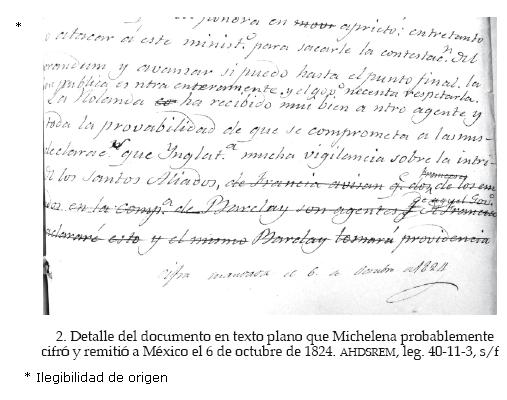 *
pondra en movr aprieto: entretanto
o atacar á este minist.º para sacarle la contestac.n del
randum y avanzar si puedo hasta el punto final. la
publica es ntra enteramente, y el gov.º necesita respetarla.
La Holanda co ha recibido mui bien a ntro agente y
toda la provabilidad de que se comprometa a las mis-
declarac.s que Ynglat.a mucha vigilancia sobre la intri-
los Santos Aliados, de Francia avisan q.e dos de los em
en la Comp.a de Barclay son agentes
esto y el mismo Barclay tomará providencia
Cifra de 6 de octubre de 1824
2. Detalle del documento en texto plano que Michelena probablemente
cifró y remitió a México el 6 de octubre de 1824. AHDSREM, leg. 40-11-3, s/f
* Ilegibilidad de origen